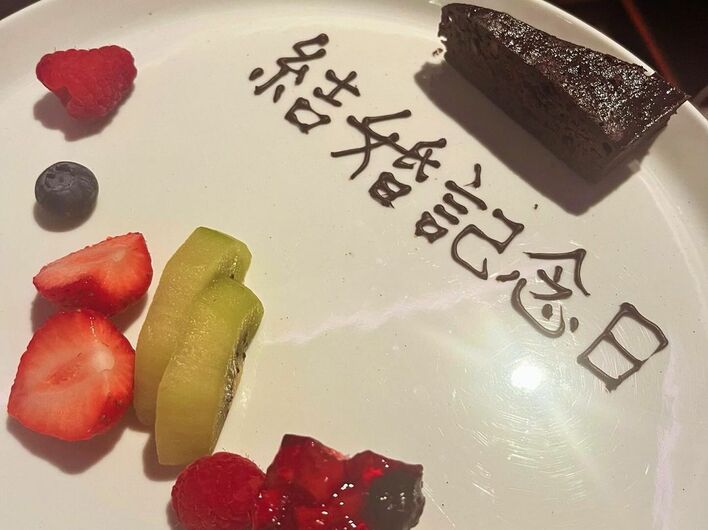 結婚記念日